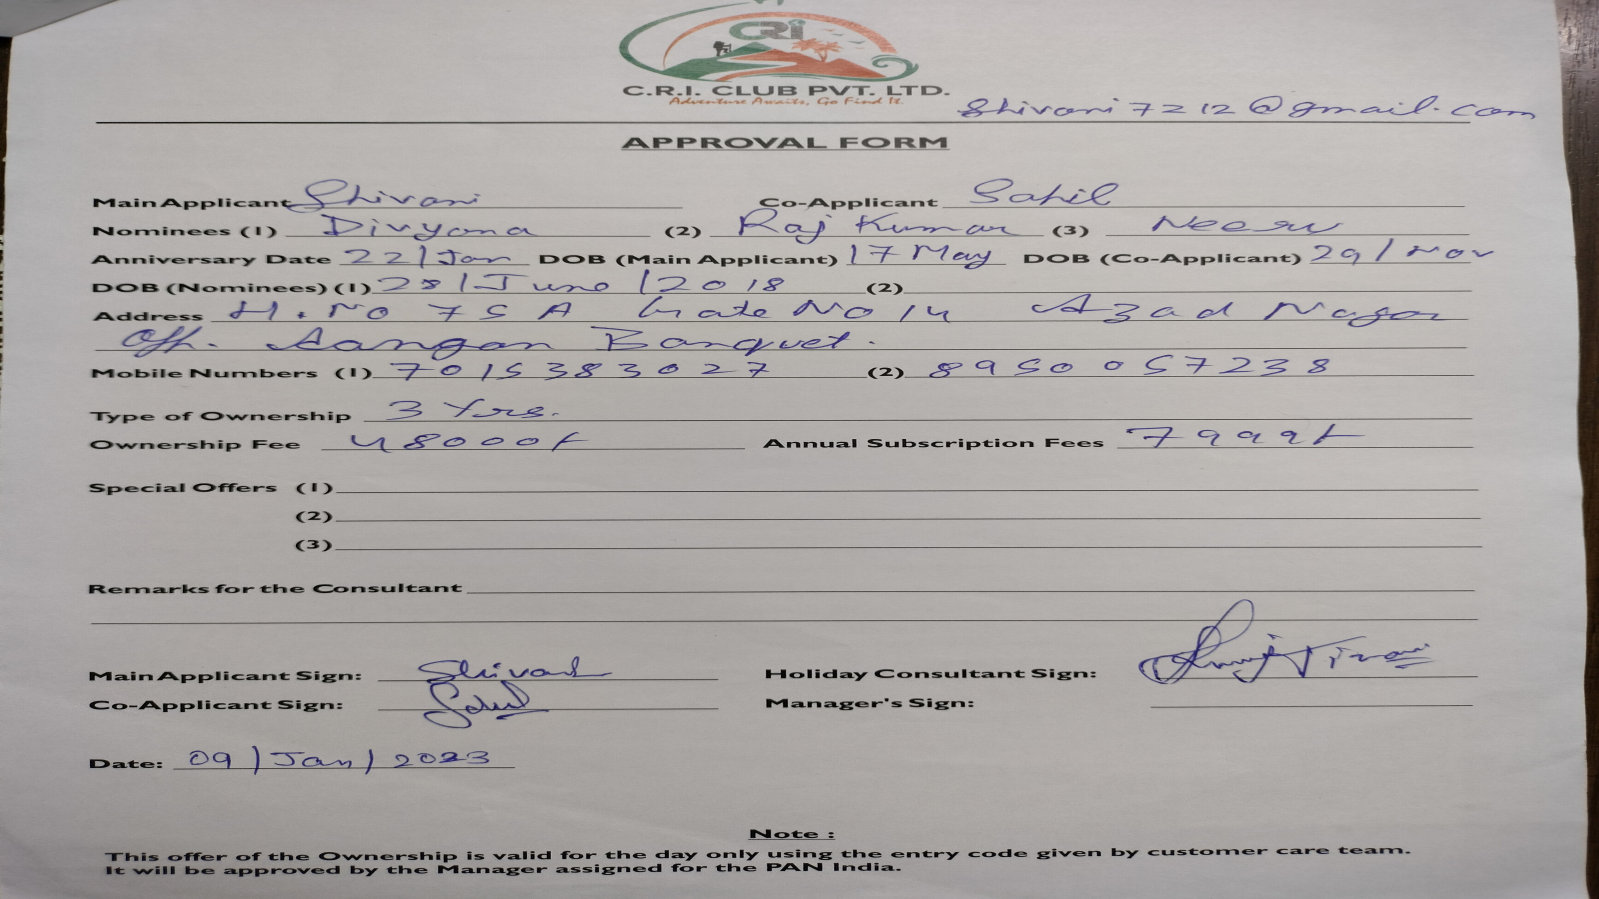 CRI
C.R.I. CLUB PVT. LTD.
Adventure Awaits, Go Find It.
Shivani7212@gmail.com
APPROVAL FORM
Main Applicant Shivani Co-Applicant Sahil
Nominees (1) Divyana (2) Raj Kumar (3) Neeru
Anniversary Date 22/Jan DOB (Main Applicant) 17 May DOB (Co-Applicant) 29/Nov
DOB (Nominees) (1) 28/June/2018 (2)
Address H.No 75 A Gate No 14 Azad Nagar
Opp. Aangan Banquet.
Mobile Numbers (1) 7015383027 (2) 8950057238
Type of Ownership 3 Yrs.
Ownership Fee 48000/- Annual Subscription Fees 7999/-
Special Offers (1)
(2)
(3)
Remarks for the Consultant
Main Applicant Sign: Shivani Holiday Consultant Sign:
Co-Applicant Sign: Sahil Manager's Sign:
Date: 09/Jan/2023
Note :
This offer of the Ownership is valid for the day only using the entry code given by customer care team.
It will be approved by the Manager assigned for the PAN India.